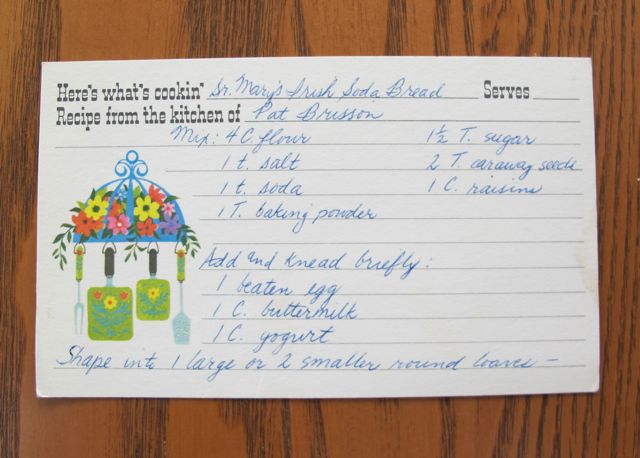 Here's what's cookin' Sr. Mary's Irish Soda Bread Serves
Recipe from the kitchen of Pat Brisson
Mix: 4 C. flour 1½ T. sugar
1 t. salt 2 T. caraway seeds
1 t. soda 1 C. raisins
1 T. baking powder
Add and knead briefly:
1 beaten egg
1 C. buttermilk
1 C. yogurt
Shape into 1 large or 2 smaller round loaves —